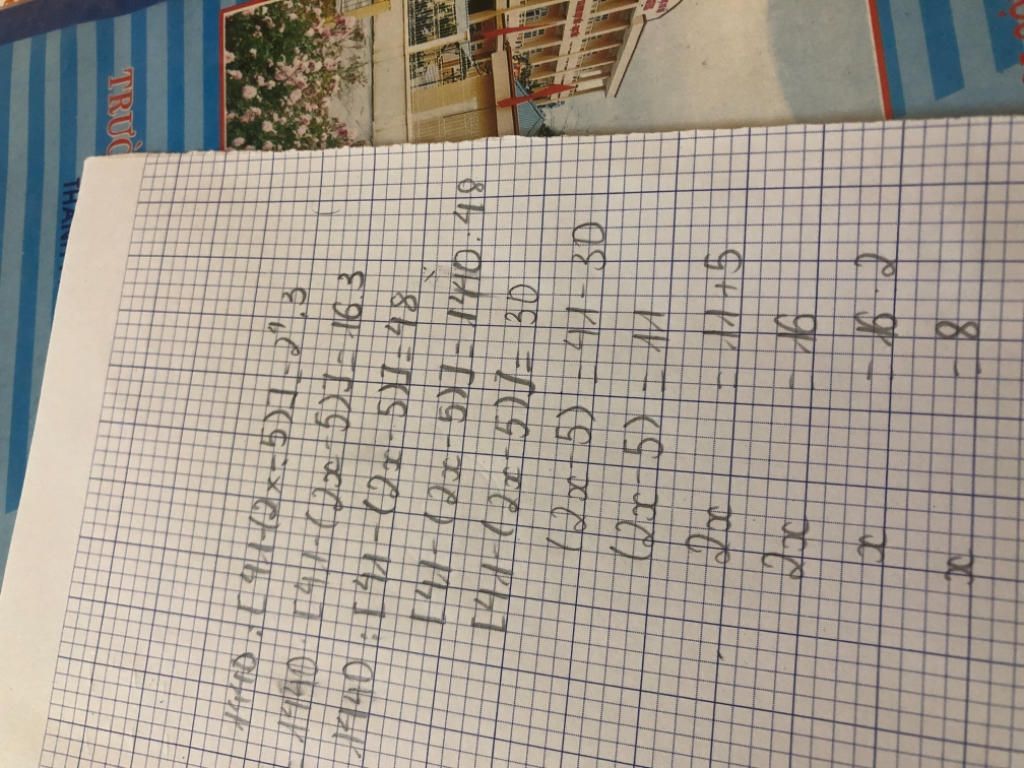 1440 : [41-(2x-5)] = 2⁴.3
1440 : [41-(2x-5)] = 16.3
1440 : [41-(2x-5)] = 48
[41-(2x-5)] = 1440 : 48
[41-(2x-5)] = 30
(2x-5) = 41-30
(2x-5) = 11
2x = 11+5
2x = 16
x = 16:2
x = 8
TRƯỜ